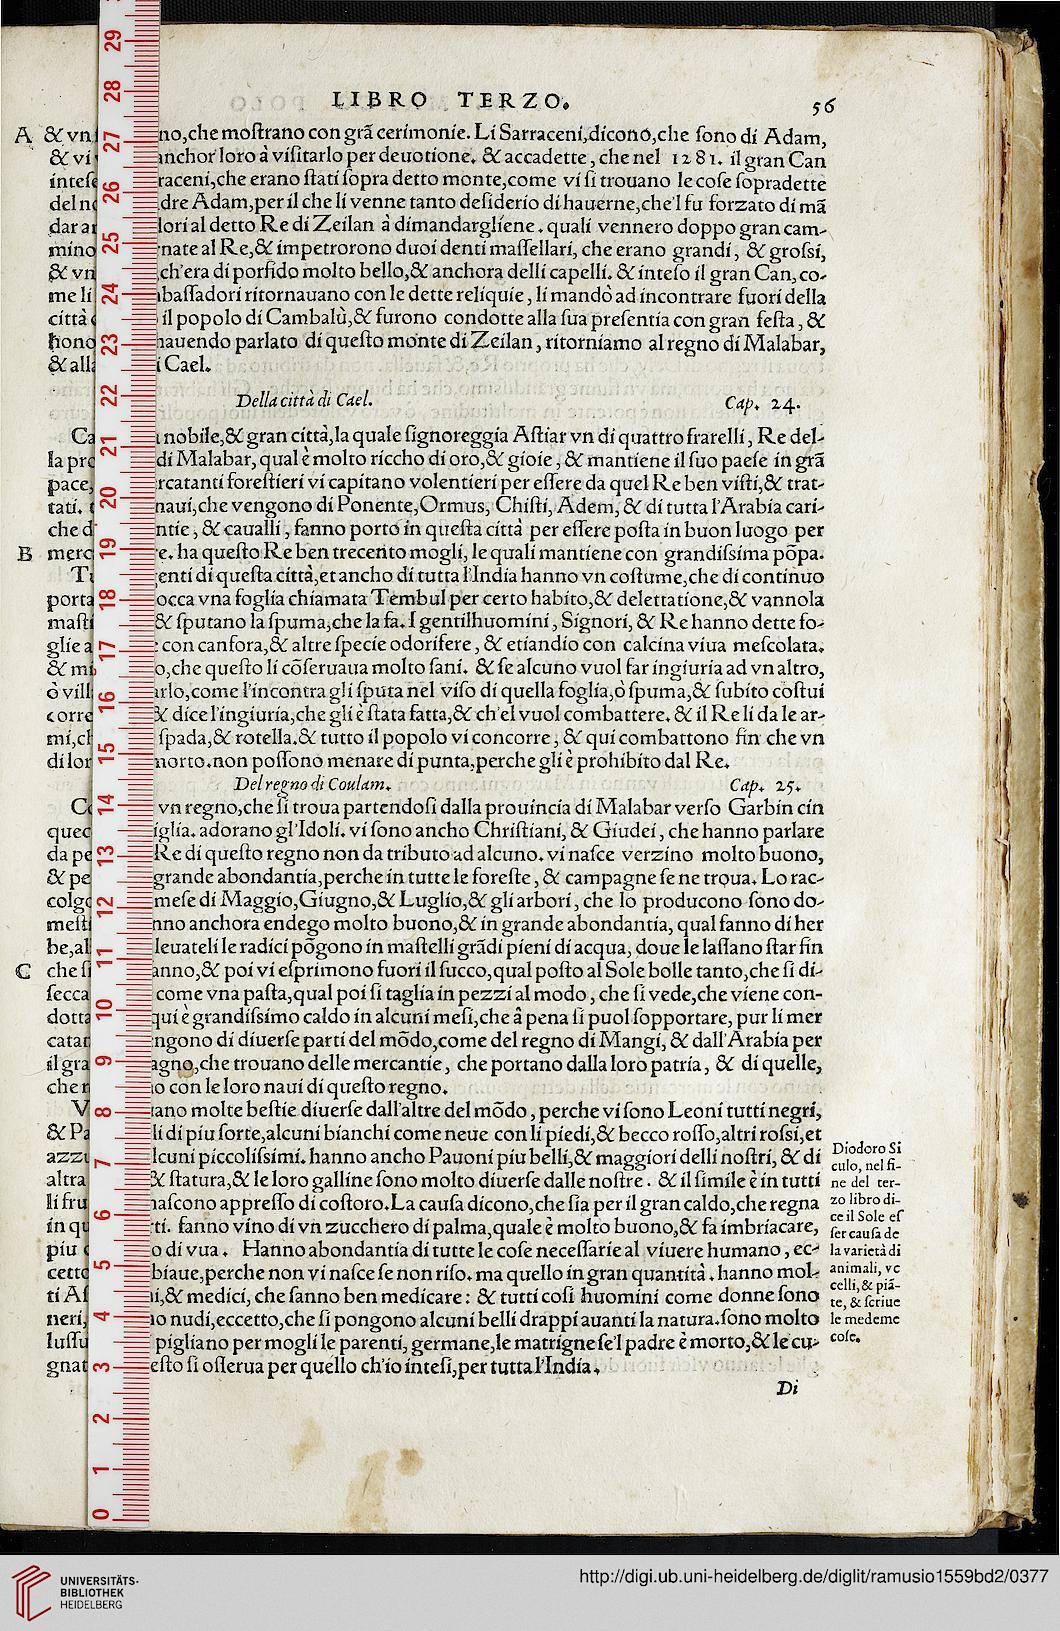 LIBRO TERZO. 56
A & vn no,che moſtrano con grã cerimonie. Li Sarraceni,dicono,che ſono di Adam,
& vi anchor loro à viſitarlo per deuotione. & accadette, che nel 1281. il gran Can
inteſe raceni,che erano ſtati ſopra detto monte,come vi ſi trouano le coſe ſopradette
del n dre Adam,per il che li venne tanto deſiderio di hauerne,che'l fu forzato di mã
dar a dori al detto Re di Zeilan à dimandargliene. quali vennero doppo gran cam-
mino nate al Re,& impetrorono duoi denti maſſellari, che erano grandi, & groſsi,
& vn ch'era di porfido molto bello,& anchora delli capelli. & inteſo il gran Can, co-
me li baſſadori ritornauano con le dette reliquie, li mandò ad incontrare fuori della
città il popolo di Cambalù,& furono condotte alla ſua preſentia con gran feſta, &
hono hauendo parlato di queſto monte di Zeilan, ritorniamo al regno di Malabar,
& all i Cael.
Della città di Cael. Cap. 24.
Ca nobile,& gran città,la quale ſignoreggia Aſtiar vn di quattro frarelli, Re del-
la pro di Malabar, qual è molto riccho di oro,& gioie, & mantiene il ſuo paeſe in grã
pace, rcatanti foreſtieri vi capitano volentieri per eſſere da quel Re ben viſti,& trat-
tati. naui,che vengono di Ponente,Ormus, Chiſti, Adem, & di tutta l'Arabia cari-
che d ntie, & caualli, fanno porto in queſta città per eſſere poſta in buon luogo per
B merc e. ha queſto Re ben trecento mogli, le quali mantiene con grandiſsima põpa.
T enti di queſta città,et ancho di tutta l'India hanno vn coſtume,che di continuo
porta occa vna foglia chiamata Tembul per certo habito,& delettatione,& vannola
maſti & ſputano la ſpuma,che la fa. I gentilhuomini, Signori, & Re hanno dette fo-
glie a con canfora,& altre ſpecie odorifere, & etiandio con calcina viua meſcolata.
& mi o,che queſto li cõſeruaua molto ſani. & ſe alcuno vuol far ingiuria ad vn altro,
ò vill arlo,come l'incontra gli ſputa nel viſo di quella foglia,ò ſpuma,& ſubito coſtui
corre & dice l'ingiuria,che gli è ſtata fatta,& ch'el vuol combattere. & il Re li da le ar-
mi,ch ſpada,& rotella.& tutto il popolo vi concorre, & qui combattono fin che vn
di lor morto.non poſſono menare di punta,perche gli è prohibito dal Re.
Del regno di Coulam. Cap. 25.
Co vn regno,che ſi troua partendoſi dalla prouincia di Malabar verſo Garbin cin
quec iglia. adorano gl'Idoli. vi ſono ancho Chriſtiani, & Giudei, che hanno parlare
da pe Re di queſto regno non da tributo ad alcuno. vi naſce verzino molto buono,
& pe grande abondantia,perche in tutte le foreſte, & campagne ſe ne troua. Lo rac-
colgo meſe di Maggio,Giugno,& Luglio,& gli arbori, che lo producono ſono do-
meſti nno anchora endego molto buono,& in grande abondantia, qual fanno di her
be,al leuateli le radici põgono in maſtelli grãdi pieni di acqua, doue le laſſano ſtar fin
C che ſi anno,& poi vi eſprimono fuori il ſucco,qual poſto al Sole bolle tanto,che ſi di-
ſecca come vna paſta,qual poi ſi taglia in pezzi al modo, che ſi vede,che viene con-
dotta qui è grandiſsimo caldo in alcuni meſi,che à pena ſi puol ſopportare, pur li mer
catan ngono di diuerſe parti del mõdo,come del regno di Mangi, & dall'Arabia per
il gra agno,che trouano delle mercantie, che portano dalla loro patria, & di quelle,
che r o con le loro naui di queſto regno.
V ano molte beſtie diuerſe dall'altre del mõdo, perche vi ſono Leoni tutti negri,
& Pa li di piu ſorte,alcuni bianchi come neue con li piedi,& becco roſſo,altri roſsi,et
azzu lcuni piccoliſsimi. hanno ancho Pauoni piu belli,& maggiori delli noſtri, & di
altra & ſtatura,& le loro galline ſono molto diuerſe dalle noſtre. & il ſimile è in tutti
li fru naſcono appreſſo di coſtoro.La cauſa dicono,che ſia per il gran caldo,che regna
in qu ti. fanno vino di vn zucchero di palma,quale è molto buono,& fa imbriacare,
piu o di vua. Hanno abondantia di tutte le coſe neceſſarie al viuere humano, ec-
cetto biaue,perche non vi naſce ſe non riſo. ma quello in gran quantità. hanno mol-
ti Aſ i,& medici, che ſanno ben medicare: & tutti coſi huomini come donne ſono
neri, o nudi,eccetto,che ſi pongono alcuni belli drappi auanti la natura.ſono molto
luſſu pigliano per mogli le parenti, germane,le matrigne ſe'l padre è morto,& le cu-
gnat eſto ſi oſſerua per quello ch'io inteſi,per tutta l'India.
Di
Diodoro Si
culo, nel fi-
ne del ter-
zo libro di-
ce il Sole eſ
ſer cauſa de
la varietà di
animali, vc
celli, & piã-
te, & ſcriue
le medeme
coſe.
29
28
27
26
25
24
23
22
21
20
19
18
17
16
15
14
13
12
11
10
9
8
7
6
5
4
3
2
1
0
UNIVERSITÄTS-
BIBLIOTHEK
HEIDELBERG
http://digi.ub.uni-heidelberg.de/diglit/ramusio1559bd2/0377